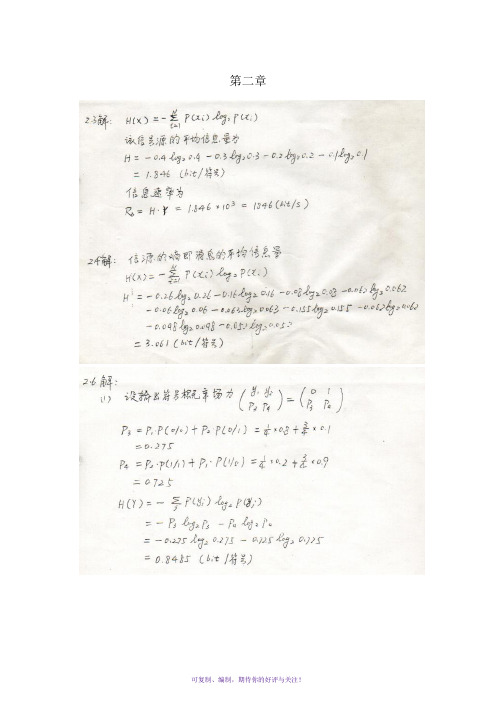 第二章
2.3解: H(X)=-∑P(xi)log₂P(xi)
该信号源的平均信息量为
H=-0.4log₂0.4-0.3log₂0.3-0.2log₂0.2-0.1log₂0.1
=1.846 (bit/符号)
信息速率为
R₀=H·r=1.846×10³=1846(bit/s)
2.4解: 信源的熵即消息的平均信息量
H(X)=-∑P(xi)log₂P(xi)
H=-0.26log₂0.26-0.16log₂0.16-0.08log₂0.08-0.062log₂0.062
-0.06log₂0.06-0.063log₂0.063-0.155log₂0.155-0.062log₂0.062
-0.098log₂0.098-0.052log₂0.052
=3.061(bit/符号)
2.6解:
(1) 设输出符号概率场为 (y₁ y₂ P₃ P₄)=(0 1 P₃ P₄)
P₃=P₁P(0/0)+P₂·P(0/1)=¼×0.8+¾×0.1
=0.275
P₄=P₂·P(1/1)+P₁·P(1/0)=¼×0.2+¾×0.9
=0.725
H(Y)=-∑P(yj)log₂P(yj)
=-P₃log₂P₃-P₄log₂P₄
=-0.275log₂0.275-0.725log₂0.725
=0.8485 (bit/符号)
可复制、编制,期待你的好评与关注!